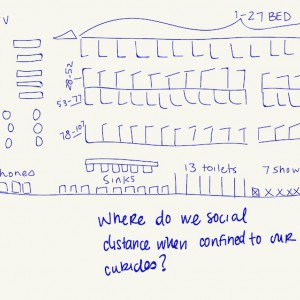 V
1-27 BED
28-52
53-77
78-107
hones
Sinks
13 toilets
7 show
x x x x
Where do we social
distance when confined to our
cubicles?